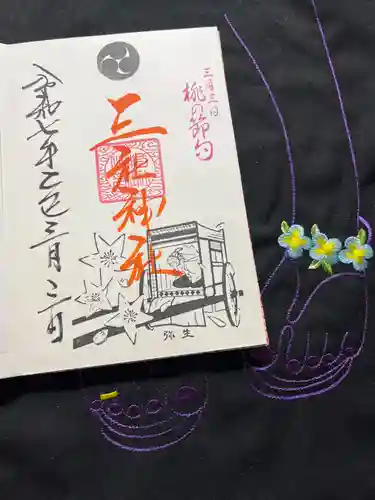 三月三日
桃の節句
三光神社
令和七年乙巳三月二日
弥生